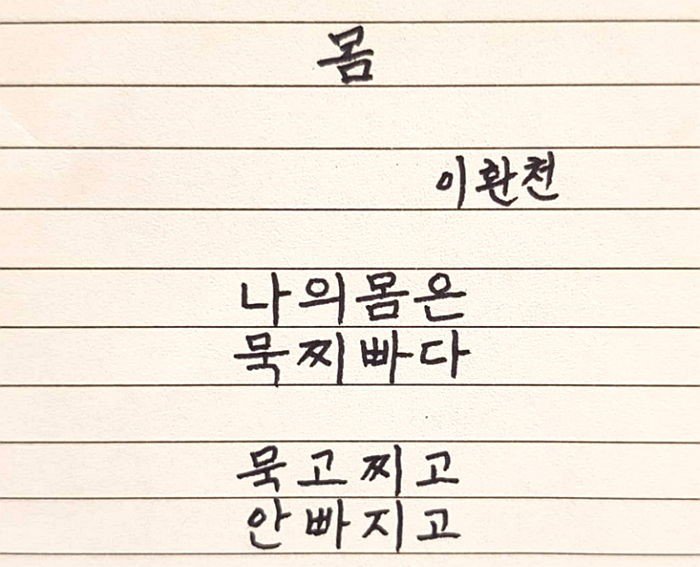 몸
이환천
나의몸은
묵찌빠다
묵고찌고
안빠지고